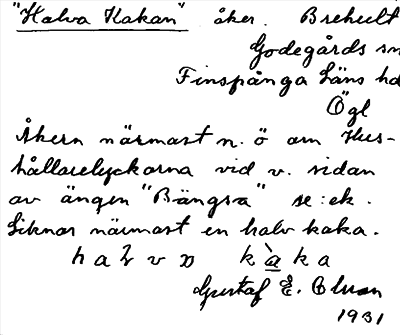 "Halva Kakan" åker. Brekult
Godegårds sn
Finspånga Läns hd
Ögl
Åkern närmast n. ö om Hus-
hållarelyckorna vid v. sidan
av ängen "Bängsa" se: ek.
Liknar närmast en halv kaka.
kaka
Gustaf E. Olsson
1931